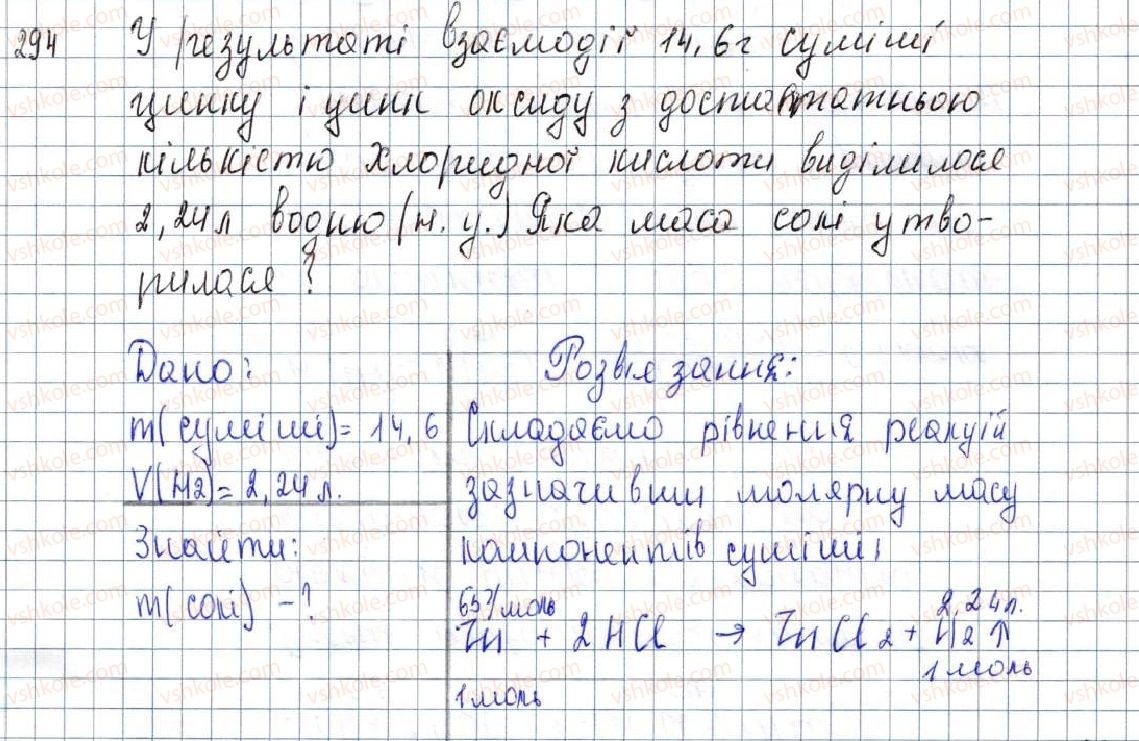 294 У результаті взаємодії 14,6г суміші
цинку і цинк оксиду з достатньою
кількістю хлоридної кислоти виділилося
2,24л водню (н.у.) Яка маса солі утво-
рилася?
Дано:
m(суміші)= 14,6
V(H2)= 2,24 л.
Знайти:
m(солі) -?
Розв'язання:
Складаємо рівняння реакцій
зазначивши молярну масу
компонентів суміші:
65г/моль 2,24л.
Zn + 2HCl → ZnCl2 + H2 ↑
1 моль 1 моль
vshkole.com